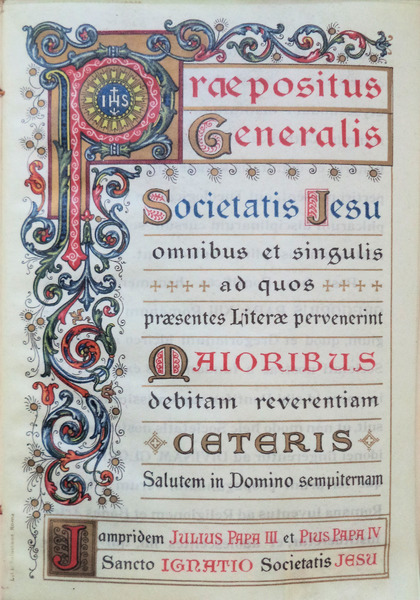 IHS
Præpositus
Generalis
Societatis Jesu
omnibus et singulis
ad quos
præsentes Literæ pervenerint
MAIORIBUS
debitam reverentiam
CETERIS
Salutem in Domino sempiternam
Jampridem JULIUS PAPA III et PIUS PAPA IV
Sancto IGNATIO Societatis JESU